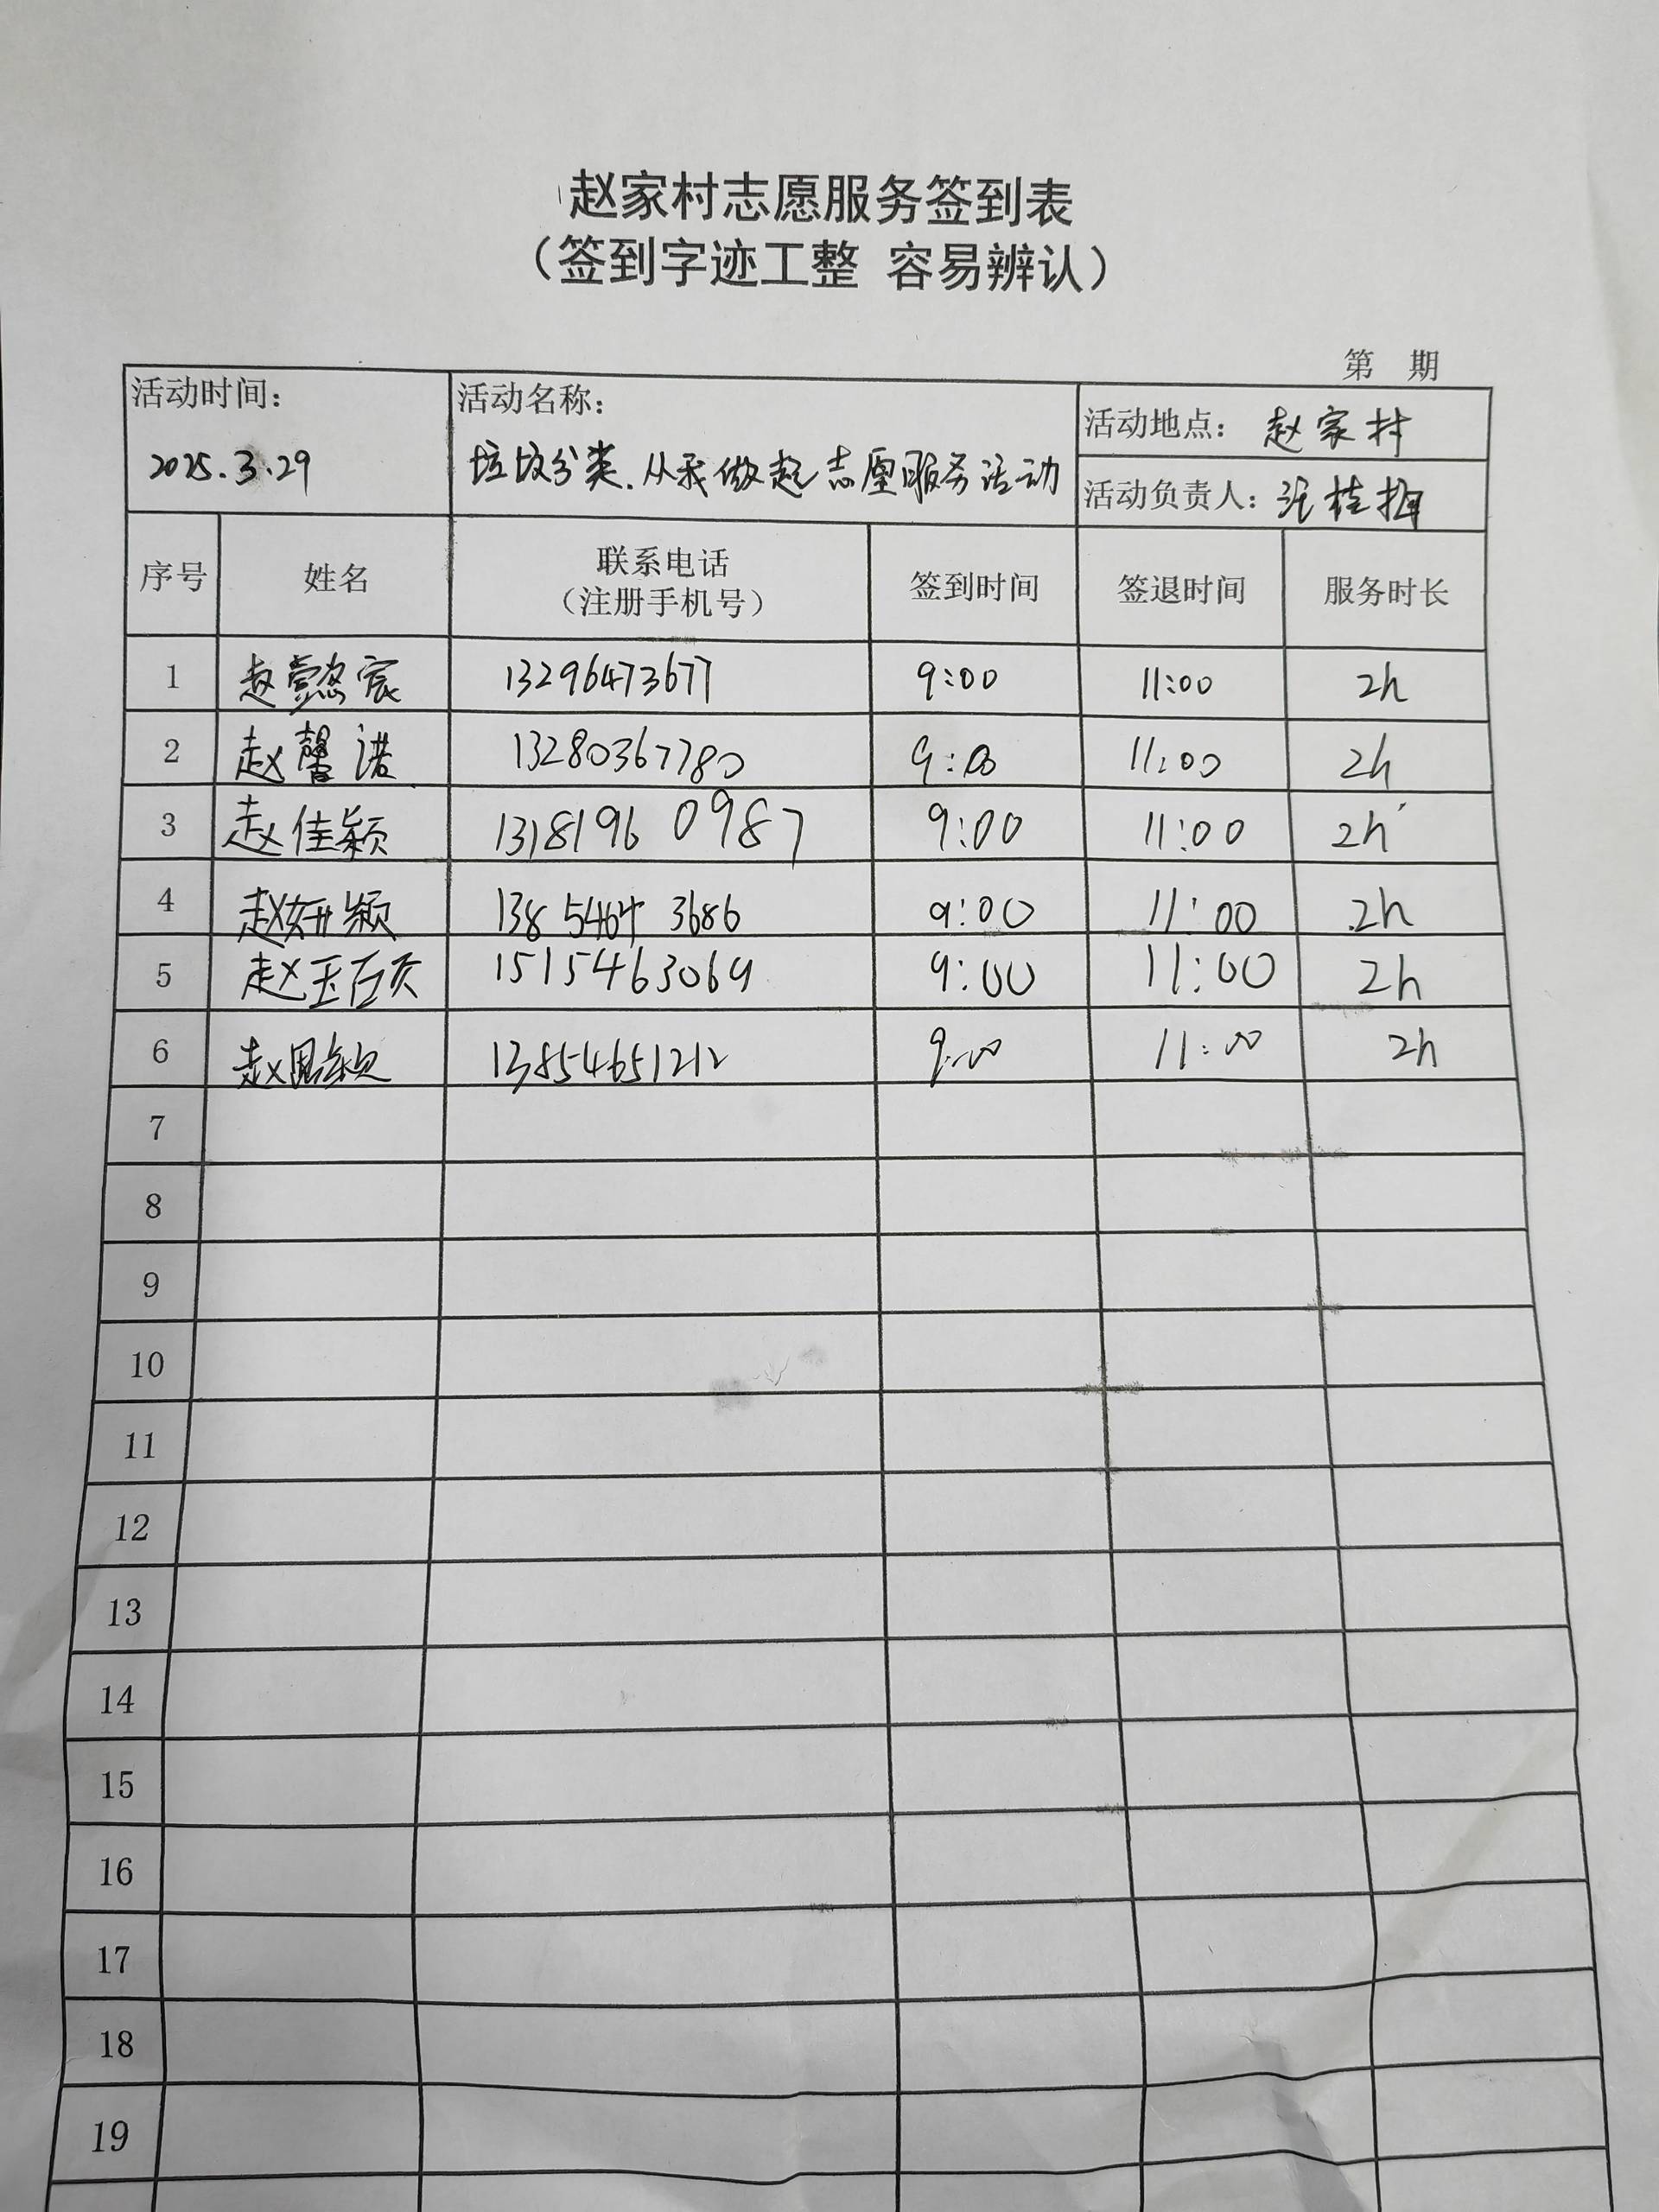 赵家村志愿服务签到表
（签到字迹工整 容易辨认）
第 期
活动时间： 活动名称： 活动地点：赵家村
2025.3.29 垃圾分类.从我做起志愿服务活动 活动负责人：汪桂梅
序号 姓名 联系电话（注册手机号） 签到时间 签退时间 服务时长
1 赵懿宸 13296473677 9:00 11:00 2h
2 赵馨诺 13280367780 9:00 11:00 2h
3 赵佳颖 13181960987 9:00 11:00 2h
4 赵妍颖 138 5464 3686 9:00 11:00 2h
5 赵玉硕 15154463069 9:00 11:00 2h
6 赵思颖 13854651212 9:00 11:00 2h
7
8
9
10
11
12
13
14
15
16
17
18
19